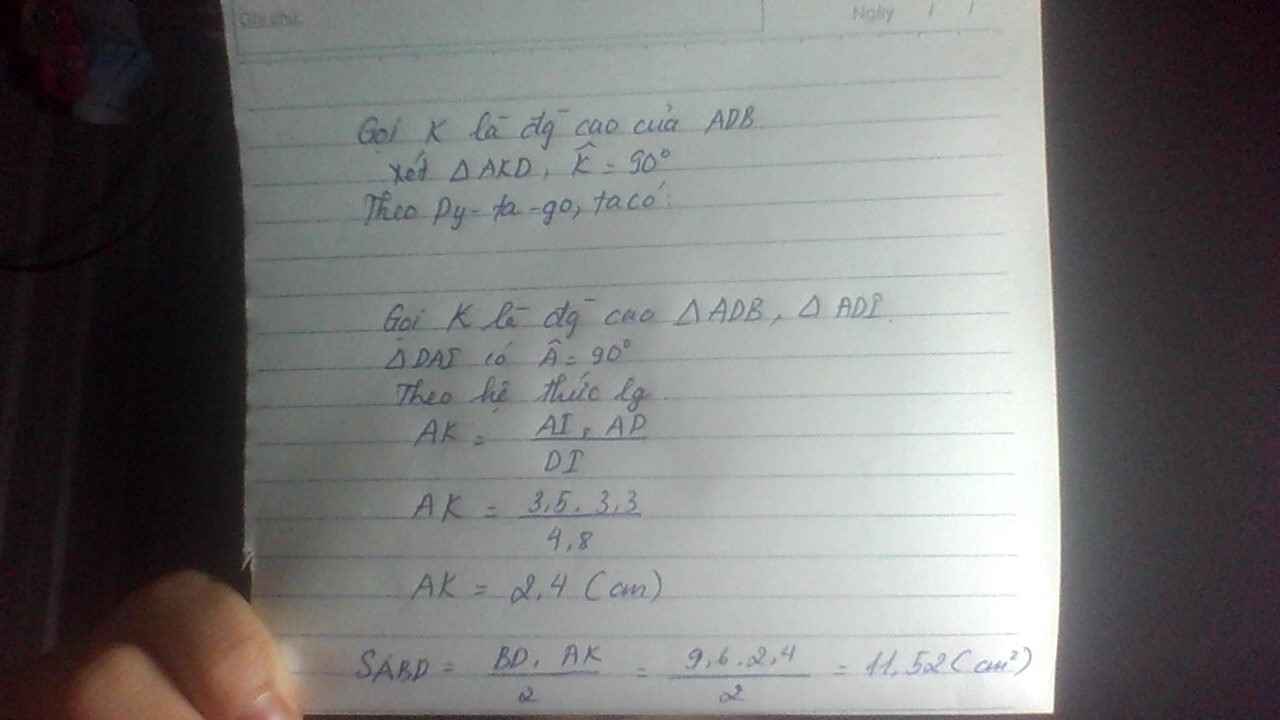 Ghi chú:
Ngày / /
Gọi K là đg cao của ADB.
xét ∆ AKD, K̂ = 90°
Theo Py-ta-go, ta có:
Gọi K là đg cao ∆ ADB, ∆ ADI.
∆DAI có Â = 90°
Theo hệ thức lg.
AK = AI . AD / DI
AK = 3,5 . 3,3 / 4,8
AK = 2,4 (cm)
SABD = BD . AK / 2 = 9,6 . 2,4 / 2 = 11,52 (cm²)